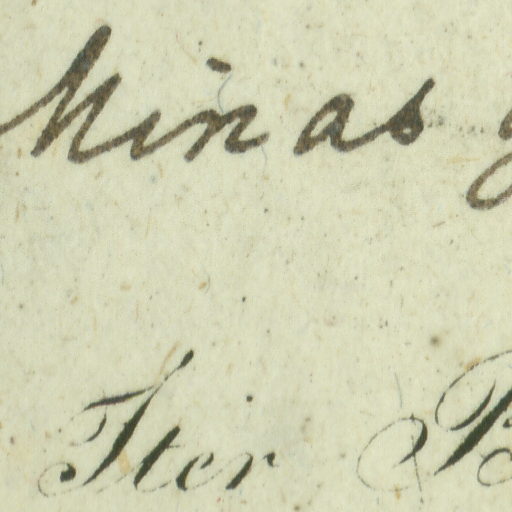 Minas
Iter B